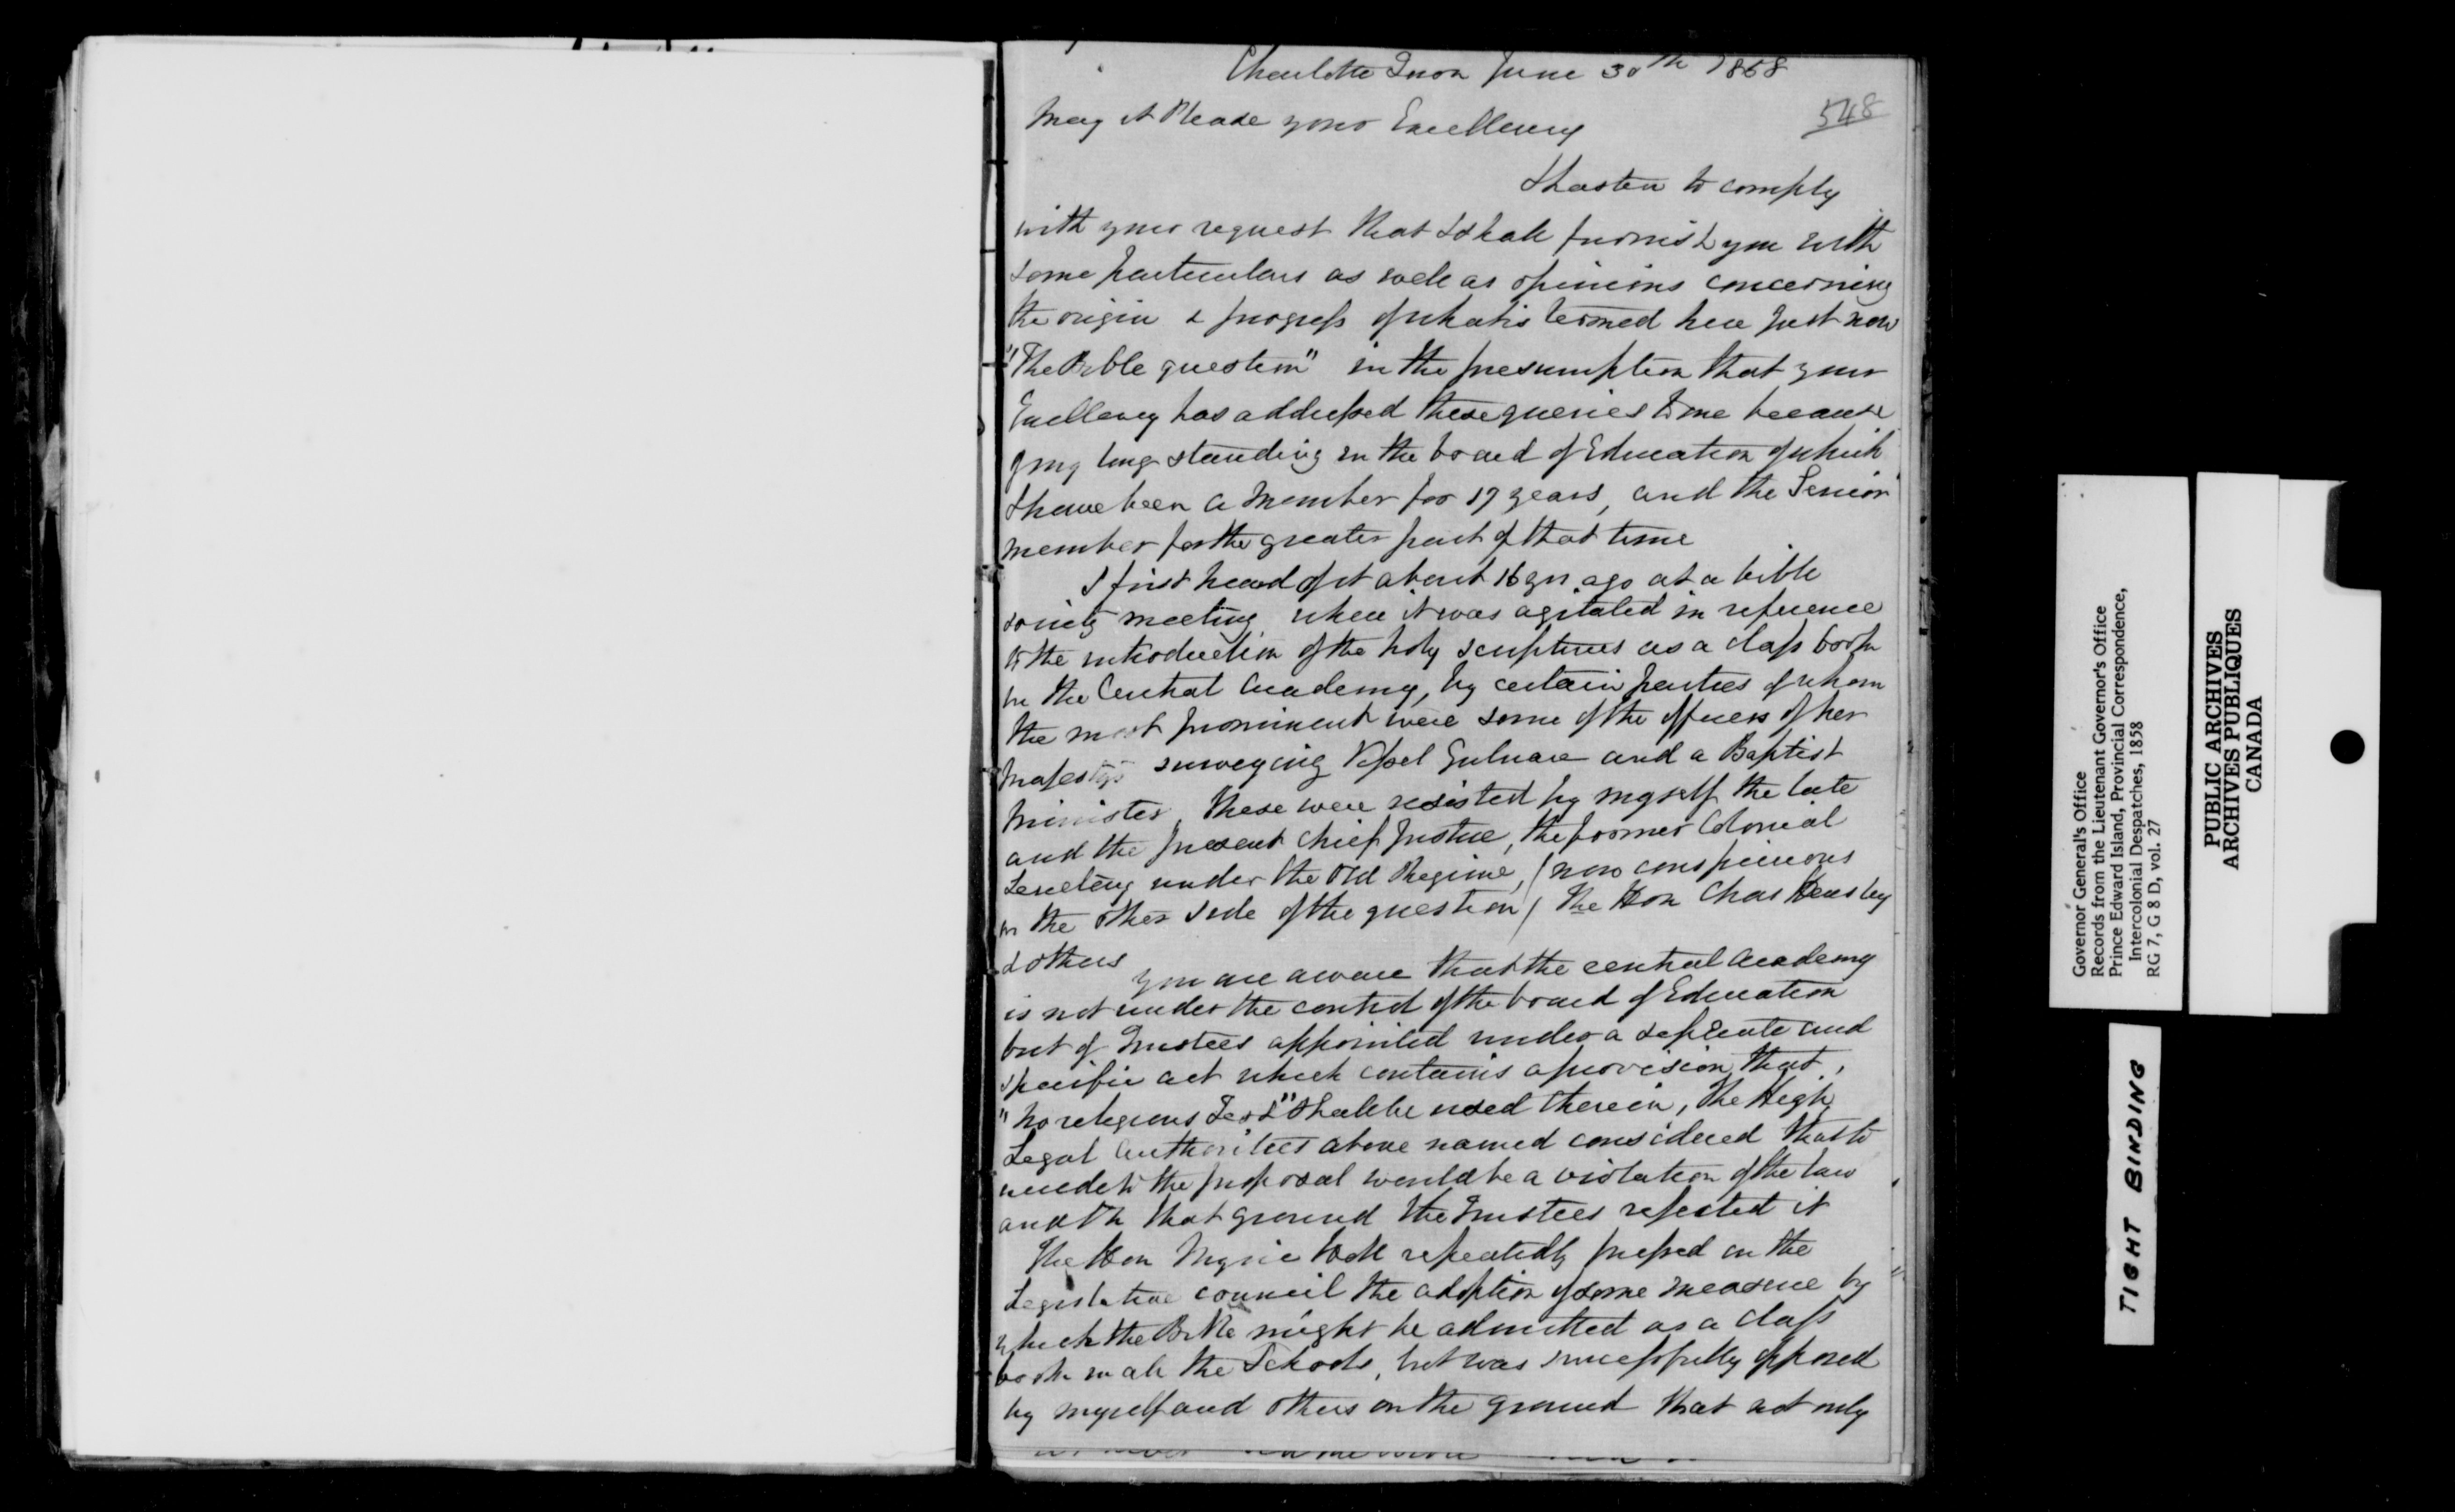 Charlotte Town June 30th 1858
548
May it Please your Excellency
I hasten to comply
with your request that I shall furnish you with
some particulars as well as opinions concerning
the origin & progress of what is termed here just now
"The Bible question" in the presumption that your
Excellency has addressed these queries to me because
of my long standing in the board of Education of which
I have been a member for 17 years, and the Senior
member for the greater part of that time
I first heard of it about 16 yrs. ago at a bible
society meeting when it was agitated in reference
to the introduction of the holy scriptures as a class book
in the Central Academy, by certain parties of whom
the most prominent were some of the officers of her
Majestys surveying Vessel Gulnare and a Baptist
Minister, these were resisted by myself the late
and the present Chief Justice, the former Colonial
Secretary under the old Regime, (now conspicuous
on the other side of the question) The Hon Chas Hensley
& others
You are aware that the central Academy
is not under the control of the board of Education
but of Trustees appointed under a seperate and
specific act which contains a provision that,
"no religious Test" shall be used therein, the High
Legal Authorities above named considered that to
accede to the proposal would be a violation of the law
and on that ground the Trustees rejected it
The Hon repeatedly pressed on the
Legislative council the adoption of some measure by
which the Bible might be admitted as a class
book in all the Schools, but was successfully opposed
by myself and others on the ground that not only
Governor General's Office
Records from the Lieutenant Governor's Office
Prince Edward Island, Provincial Correspondence,
Intercolonial Despatches, 1858
RG 7, G 8 D, vol. 27
PUBLIC ARCHIVES
ARCHIVES PUBLIQUES
CANADA
TIGHT BINDING